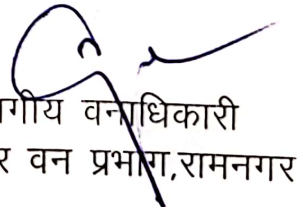 गीय वनाधिकारी
र वन प्रभाग,रामनगर